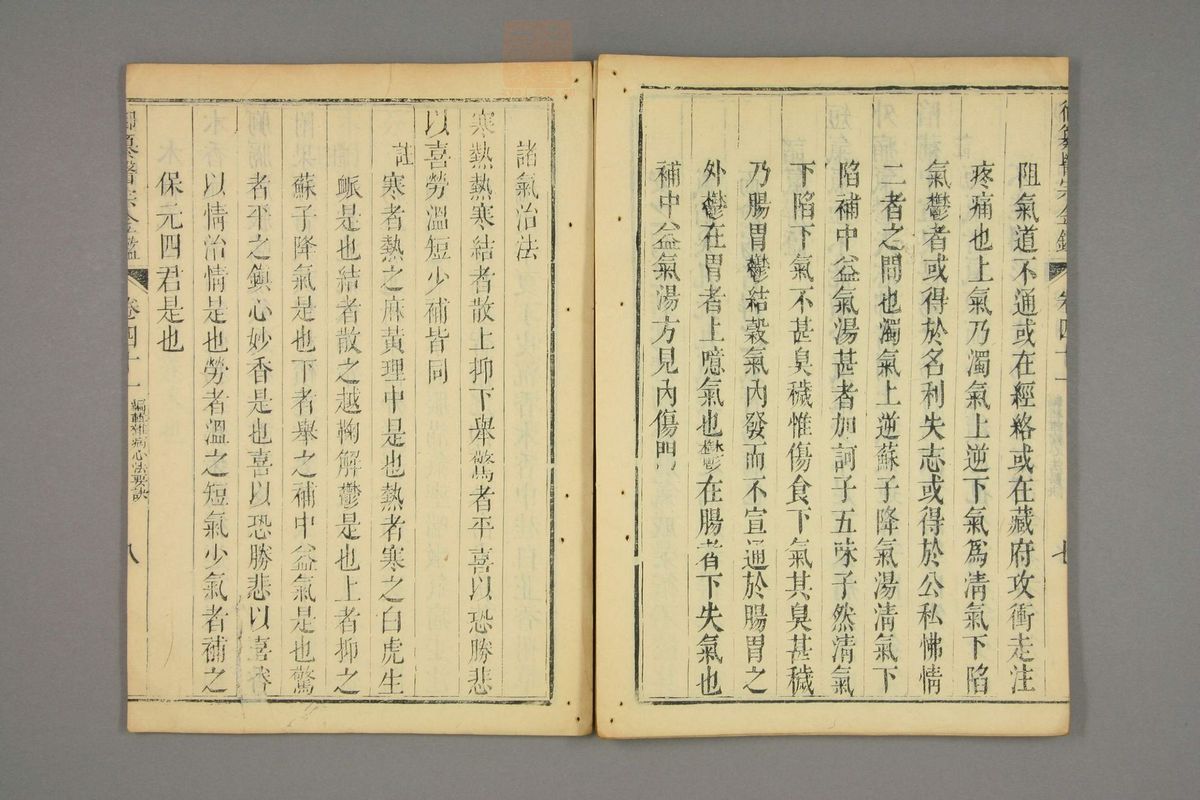 阻氣道不通或在經絡或在藏府攻衝走注
疼痛也上氣乃濁氣上逆下氣爲淸氣下陷
氣鬱者或得於名利失志或得於公私怫情
二者之間也濁氣上逆蘇子降氣湯淸氣下
陷補中益氣湯甚者加訶子五味子然淸氣
下陷下氣不甚臭穢惟傷食下氣其臭甚穢
乃腸胃鬱結穀氣內發而不宣通於腸胃之
外鬱在胃者上噫氣也鬱在腸者下失氣也
補中益氣湯方見內傷門
諸氣治法
寒熱熱寒結者散上抑下舉驚者平喜以恐勝悲
以喜勞溫短少補皆同
註
寒者熱之麻黃理中是也熱者寒之白虎生
脈是也結者散之越鞠解鬱是也上者抑之
蘇子降氣是也下者舉之補中益氣是也驚
者平之鎭心妙香是也喜以恐勝悲以喜勝
以情治情是也勞者溫之短氣少氣者補之
保元四君是也
御纂醫宗金鑑
卷四十一
編輯雜病心法要訣
八
卷四十一
七